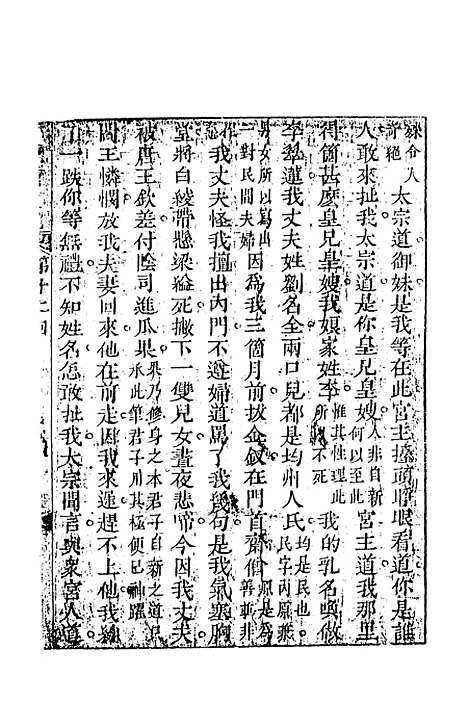 綠令人
許絕
太宗道御妹是我等在此宮主擡頭睜眼看道你是誰
人敢來扯我太宗道是你皇兄皇嫂
人非自新
何以至此
宮主道我那里
得箇甚麼皇兄皇嫂我娘家姓李
惟其性理此
所不死
我的乳名喚做
李翠蓮我丈夫姓劉名全兩口兒都是均州人氏
均是民也
民字丙原兼
男女所以寫出
一對民間夫婦
因為我三箇月前拔金釵在門首齋僧
原是為
善新非
我丈夫怪我擅出內門不遵婦道罵了我幾句是我氣塞胸
堂將白綾帶懸梁縊死撇下一雙兒女晝夜悲啼今因我丈夫
被唐王欽差付陰司進瓜果
果乃修身之本君子自新之道
承此筆君子用其極便已神躍
閻王憐憫放我夫妻回來他在前走因我來遲趕不上他我絆
了一跌你等無禮不知姓名怎敢扯我太宗聞言與眾宮人道
第十二回